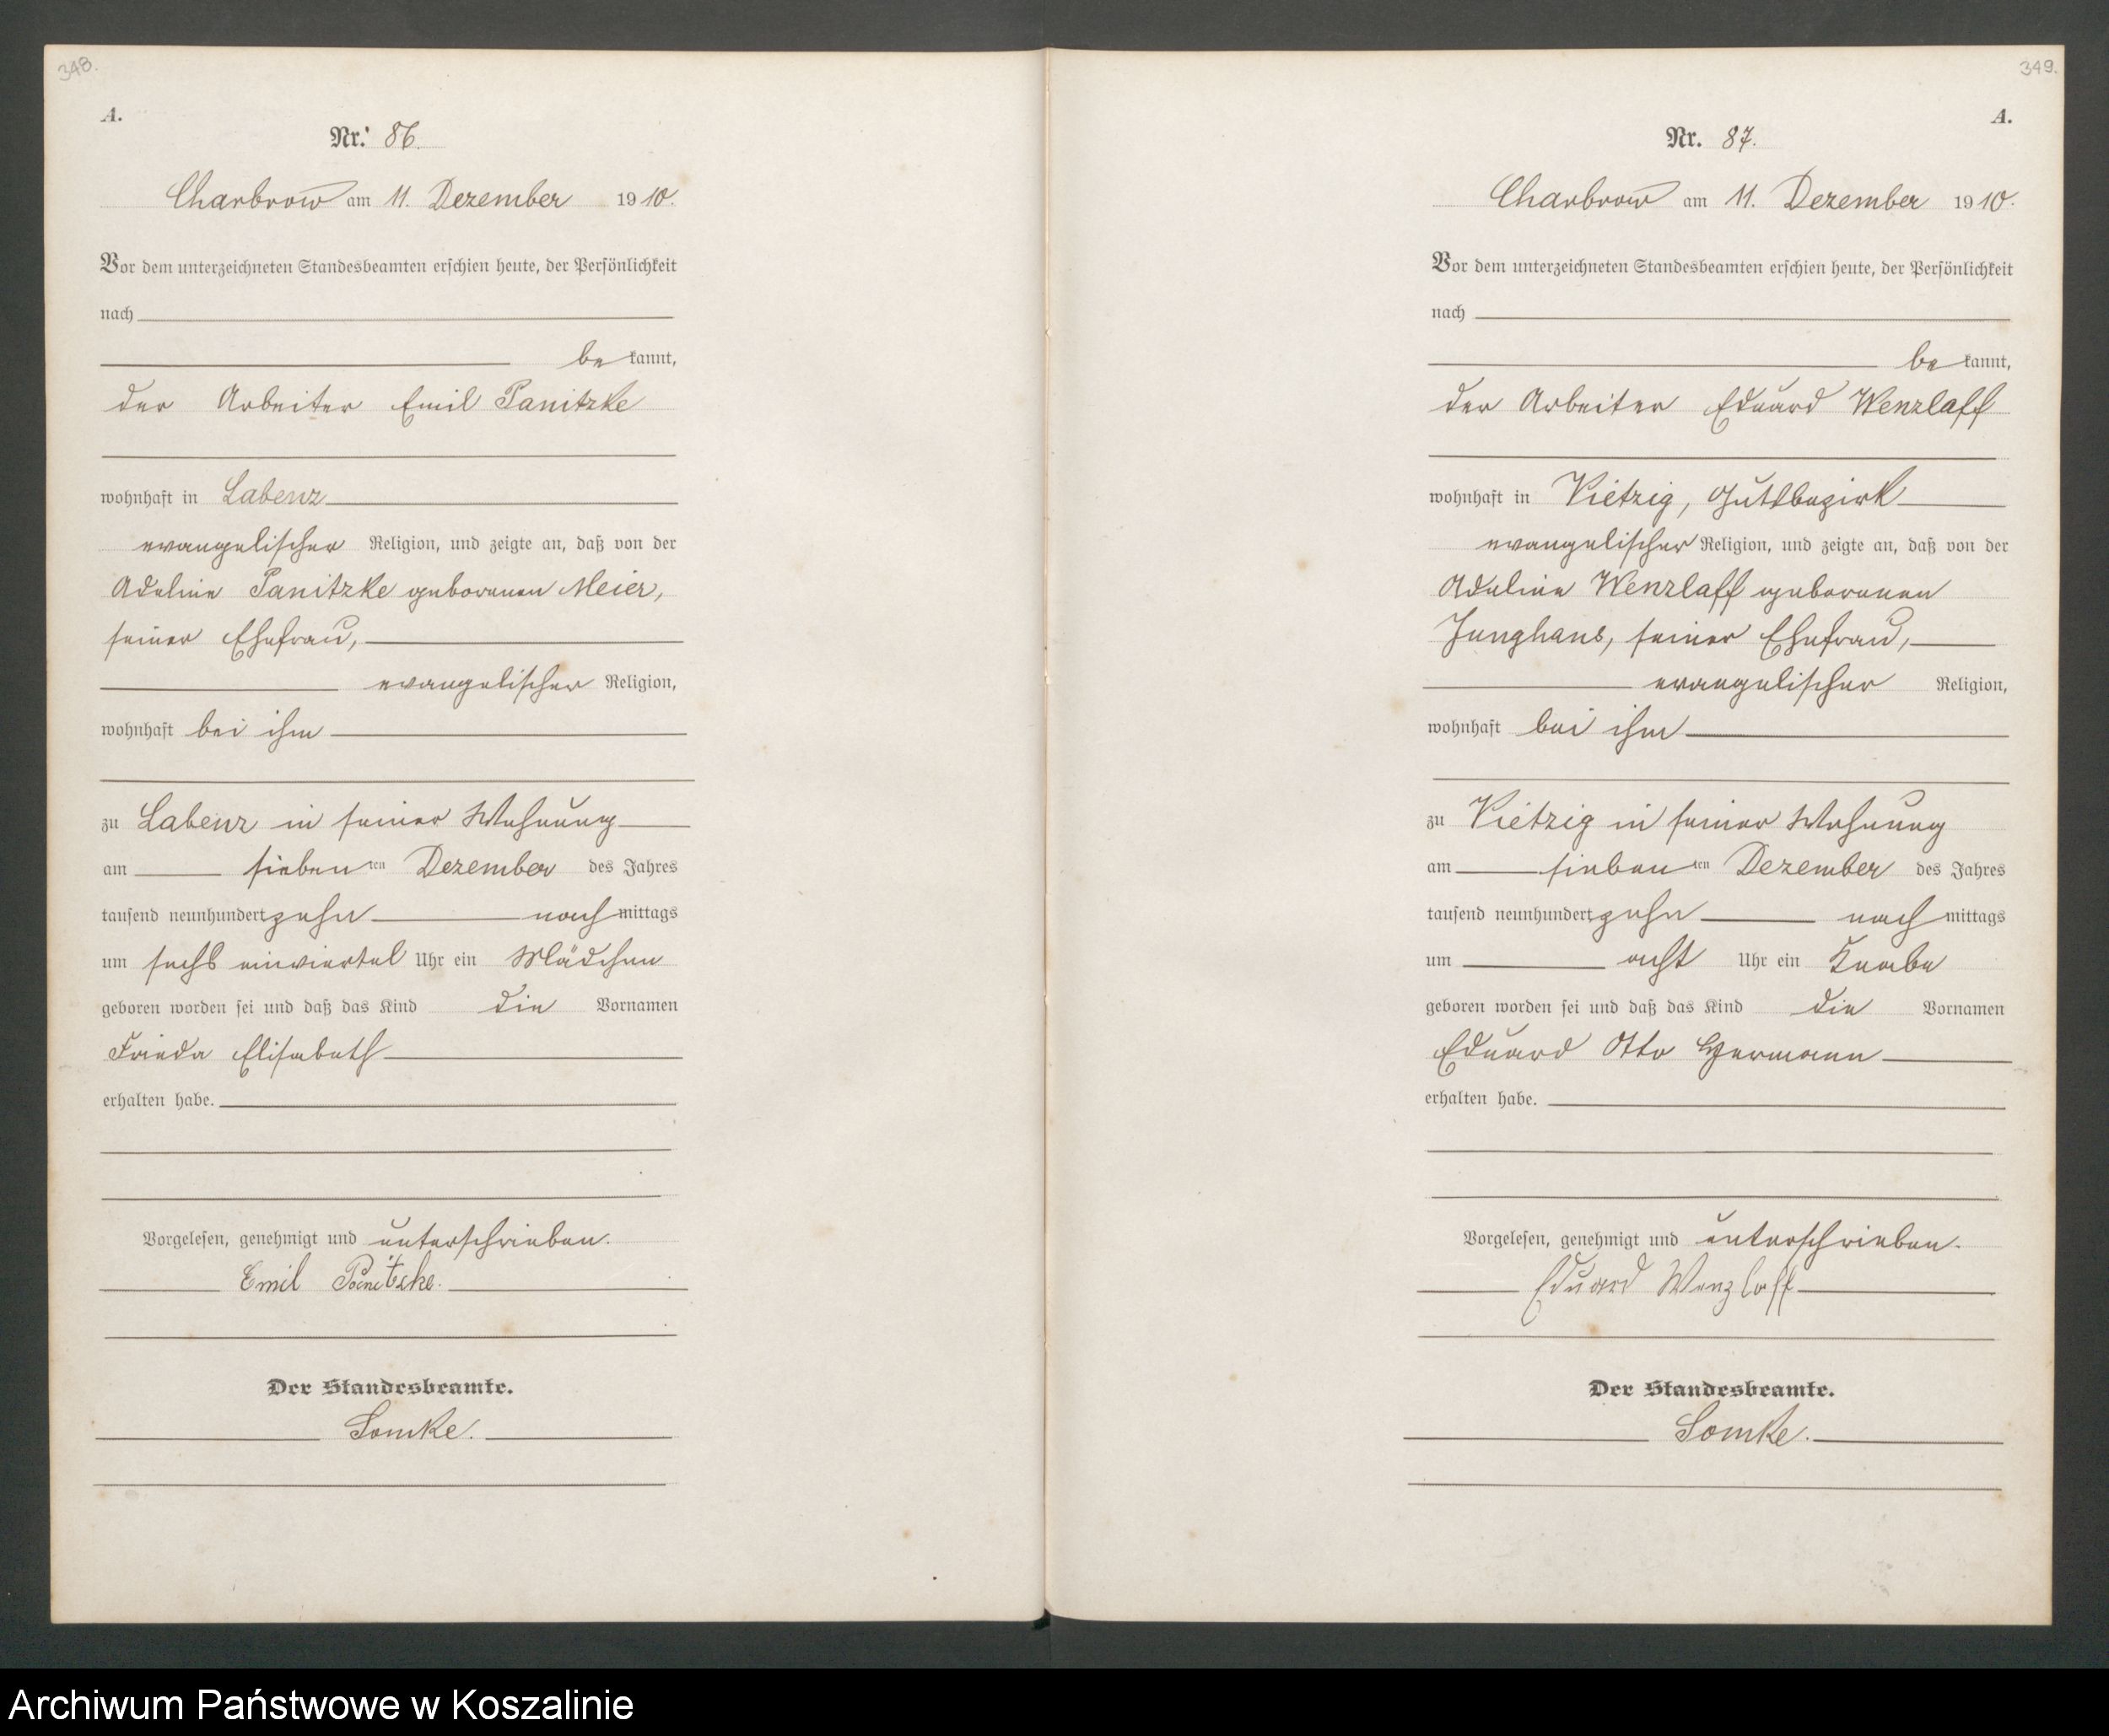 348.
A.
Nr. 86.
Charbrow am 11. Dezember 1910.
Vor dem unterzeichneten Standesbeamten erschien heute, der Persönlichkeit
nach
bekannt,
der Arbeiter Emil Panitzke
wohnhaft in Labenz
evangelischer Religion, und zeigte an, daß von der
Adeline Panitzke geborenen Meier,
seiner Ehefrau,
evangelischer Religion,
wohnhaft bei ihm
zu Labenz in seiner Wohnung
am siebenten Dezember des Jahres
tausend neunhundert zehn nachmittags
um sechs einviertel Uhr ein Mädchen
geboren worden sei und daß das Kind die Vornamen
Frieda Elisabeth
erhalten habe.
Vorgelesen, genehmigt und unterschrieben.
Emil Panitzke.
Der Standesbeamte.
349.
A.
Nr. 87.
Charbrow am 11. Dezember 1910.
Vor dem unterzeichneten Standesbeamten erschien heute, der Persönlichkeit
nach
bekannt,
der Arbeiter Eduard Wenzlaff
wohnhaft in Vietzig, Gutsbezirk
evangelischer Religion, und zeigte an, daß von der
Adeline Wenzlaff geborenen
Junghans, seiner Ehefrau,
evangelischer Religion,
wohnhaft bei ihm
zu Vietzig in seiner Wohnung
am siebenten Dezember des Jahres
tausend neunhundert zehn nachmittags
um acht Uhr ein Knabe
geboren worden sei und daß das Kind die Vornamen
Eduard Otto Hermann
erhalten habe.
Vorgelesen, genehmigt und unterschrieben.
Eduard Wenzlaff
Der Standesbeamte.
Archiwum Państwowe w Koszalinie